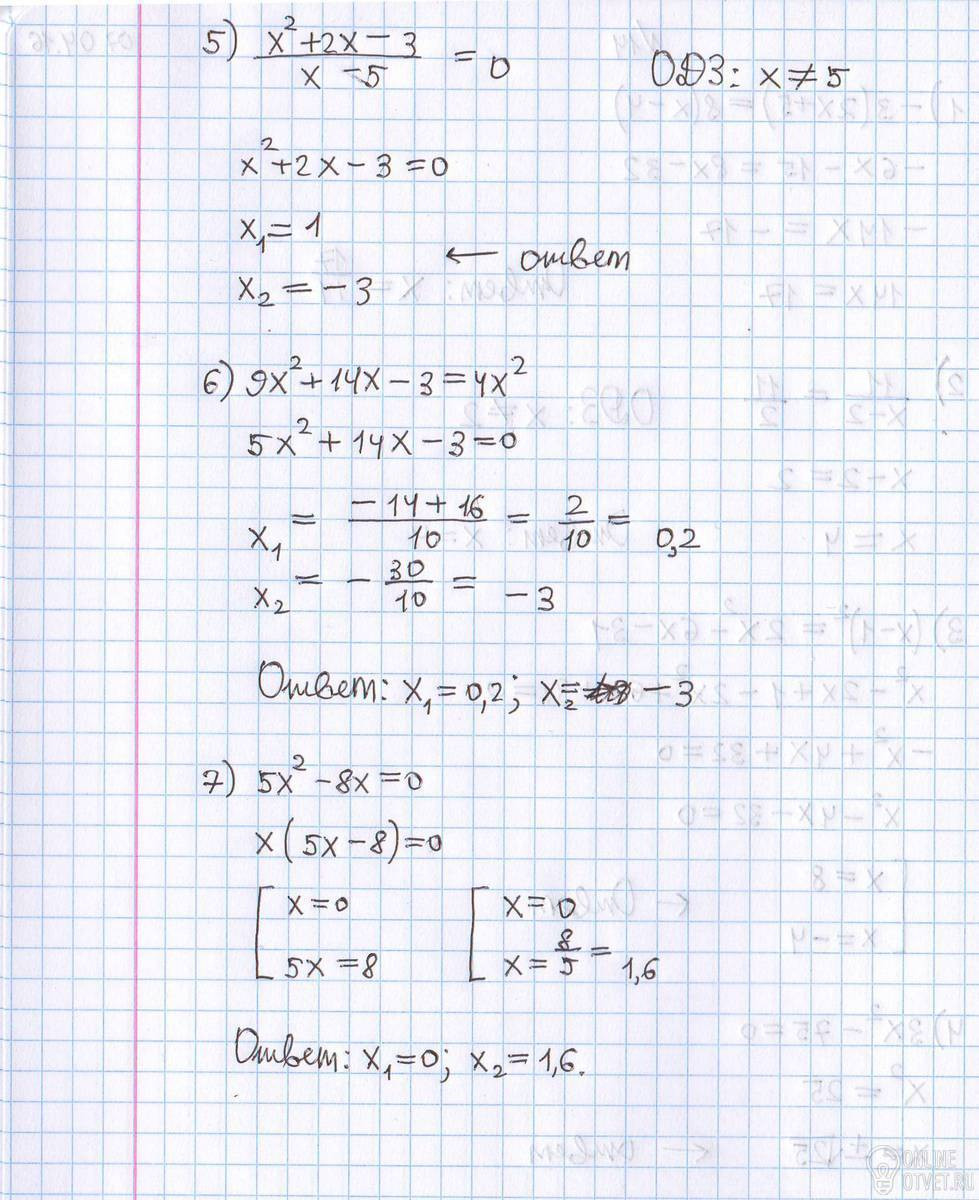 5) (x²+2x-3)/(x-5) = 0 ОДЗ: x≠5
x²+2x-3=0
x₁=1
← ответ
x₂=-3
6) 9x²+14x-3=4x²
5x²+14x-3=0
x₁ = (-14+16)/10 = 2/10 = 0,2
x₂ = -30/10 = -3
Ответ: x₁=0,2; x₂= -3
7) 5x²-8x=0
x(5x-8)=0
[ x=0 [ x=0
5x=8 x=8/5=1,6
Ответ: x₁=0; x₂=1,6.
ONLINE
OTVET.RU